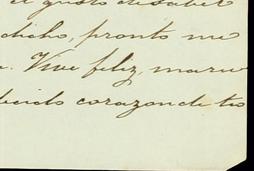 gusto de saber
dicho, pronto me
Vive feliz,
corazon de tu